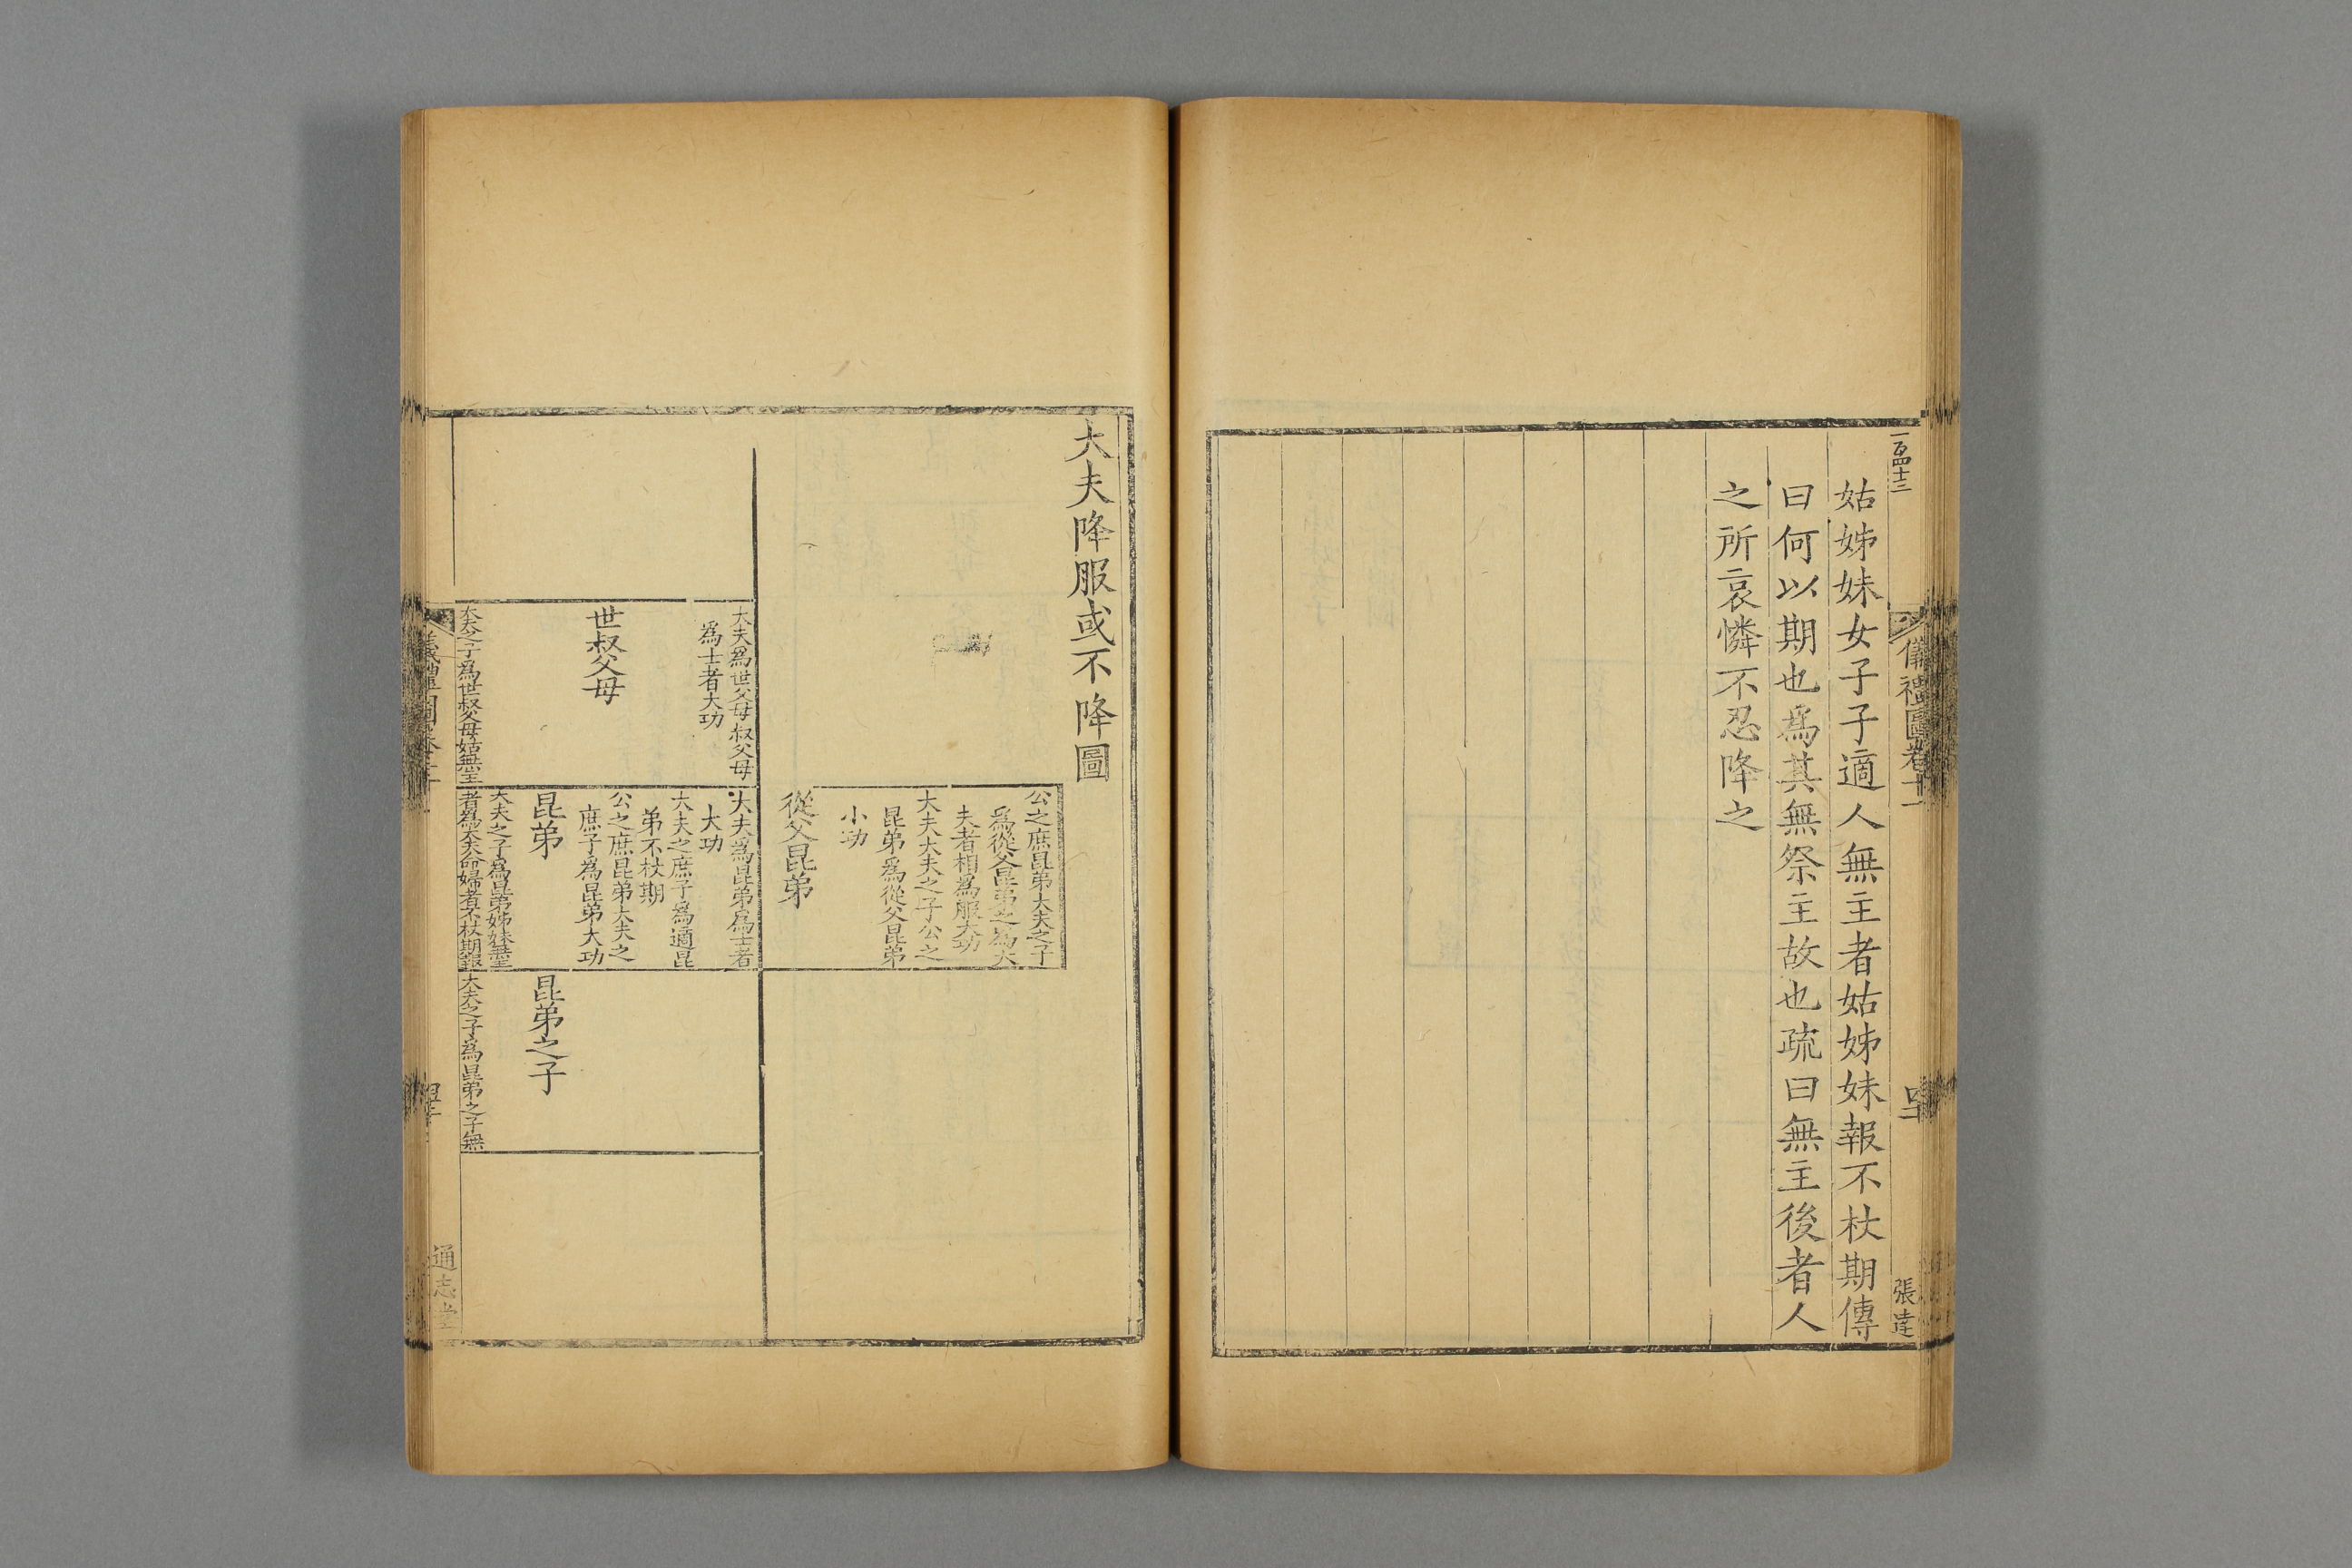 儀禮圖卷十一
張達
姑姊妹女子子適人無主者姑姊妹報不杖期傳
曰何以期也爲其無祭主故也疏曰無主後者人
之所哀憐不忍降之
大夫降服或不降圖
公之庶昆弟大夫之子
爲從父昆弟之爲大
夫者相爲服大功
大夫大夫之子公之
昆弟爲從父昆弟
小功
從父昆弟
大夫爲世父母叔父母
爲士者大功
世叔父母
大夫之子爲世叔父母姑無主
大夫爲昆弟爲士者
大功
大夫之庶子爲適昆
弟不杖期
公之庶昆弟大夫之
庶子爲昆弟大功
昆弟
大夫之子爲昆弟姊妹無主
者爲大夫命婦者不杖期報
昆弟之子
大夫之子爲昆弟之子無
通志堂